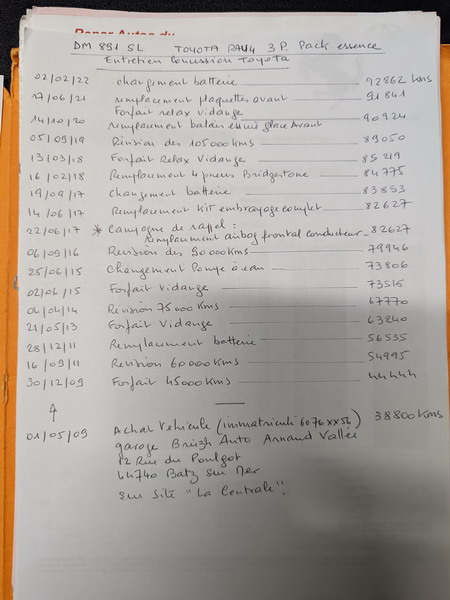 DM 891 SL TOYOTA RAV4 3 P. Pack essence
Entretien Concession Toyota
02/02/22 changement batterie 92862 kms
17/06/21 remplacement plaquettes avant 91841
Forfait relax vidange
14/10/20 remplacement balais essuie glace Avant 90924
05/09/19 Révision des 105000 kms 89050
13/03/18 Forfait Relax Vidange 85219
16/02/18 Remplacement 4 pneus Bridgestone 84775
19/09/17 changement batterie 83853
14/06/17 Remplacement Kit embrayage complet 82627
22/06/17 * Campagne de rappel :
remplacement airbag frontal conducteur 82627
06/09/16 Revision des 90000 Kms 79946
25/06/15 Changement Pompe à eau 73806
02/06/15 Forfait Vidange 73515
04/04/14 Révision 75000 Kms 67770
21/05/13 Forfait Vidange 63240
28/12/11 Remplacement batterie 56535
16/09/11 Revision 60000 Kms 54995
30/12/09 Forfait 45000 Kms 44444
01/05/09 Achat Vehicule (immatriculé 6076 XX 56) 38800 Kms
garage Breizh Auto Armand Vallée
12 Rue du Poulgot
44740 Batz sur Mer
sur site "La Centrale".